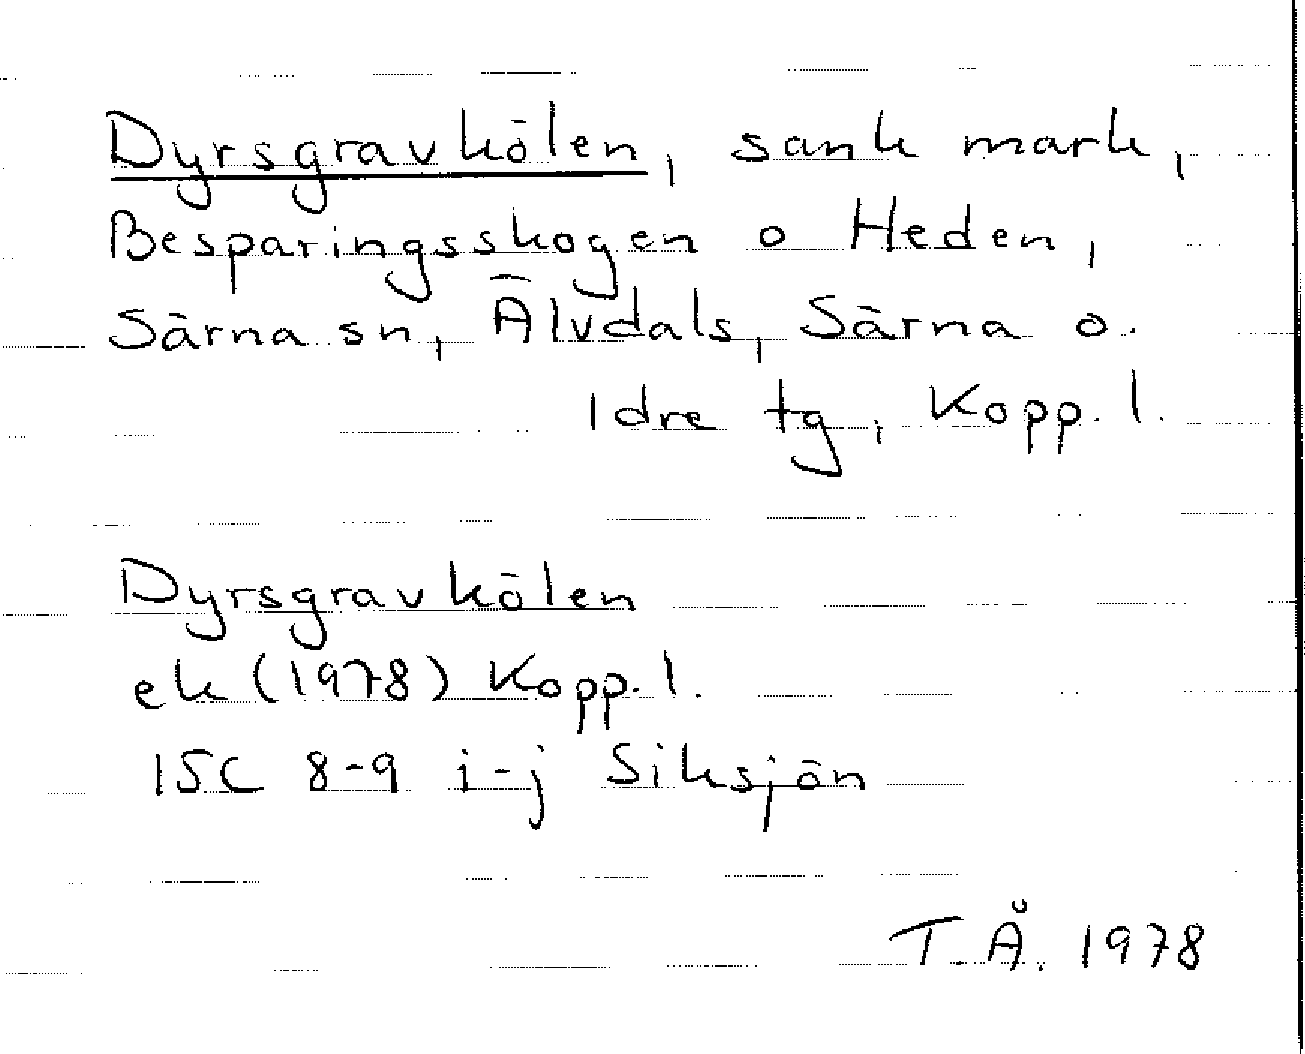 Dyrsgravkölen, sank mark,
Besparingsskogen o Heden,
Särna sn, Älvdals, Särna o.
Idre tg, Kopp. l.
Dyrsgravkölen
ek (1978) Kopp. l.
15C 8-9 i-j Siksjön
T.Å. 1978